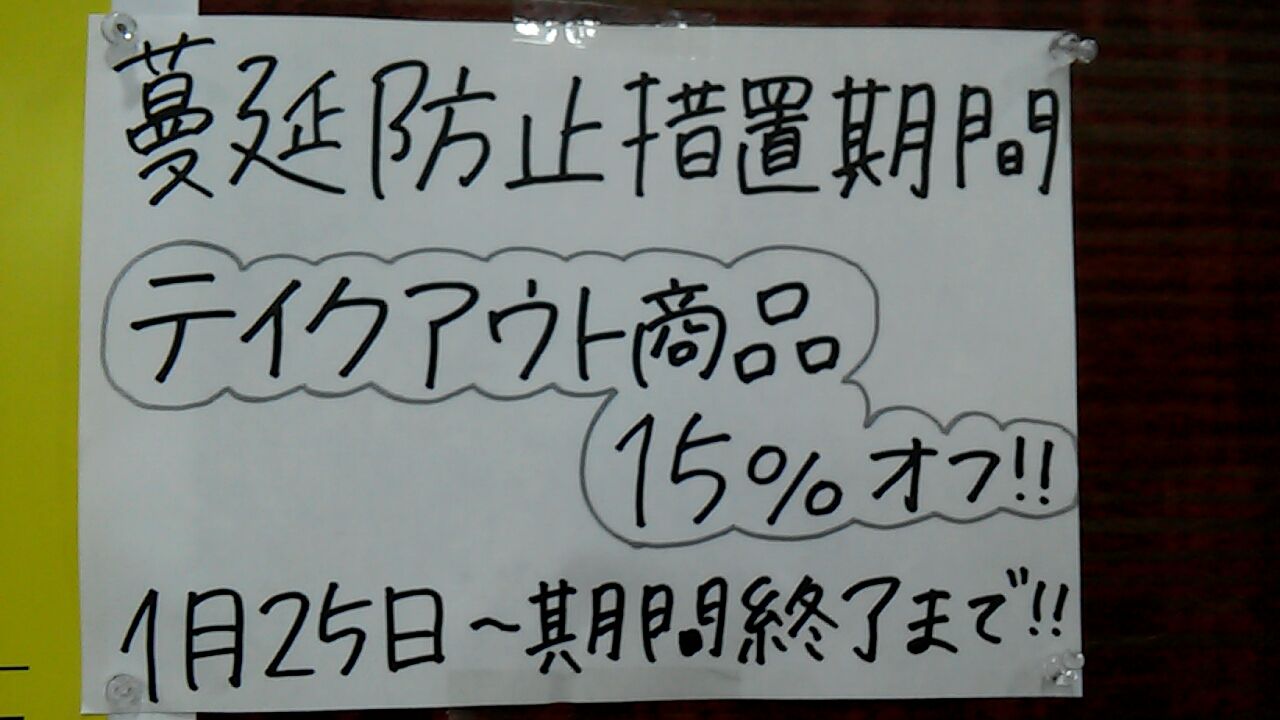 蔓延防止措置期間
テイクアウト商品
15%オフ!!
1月25日～期間終了まで!!